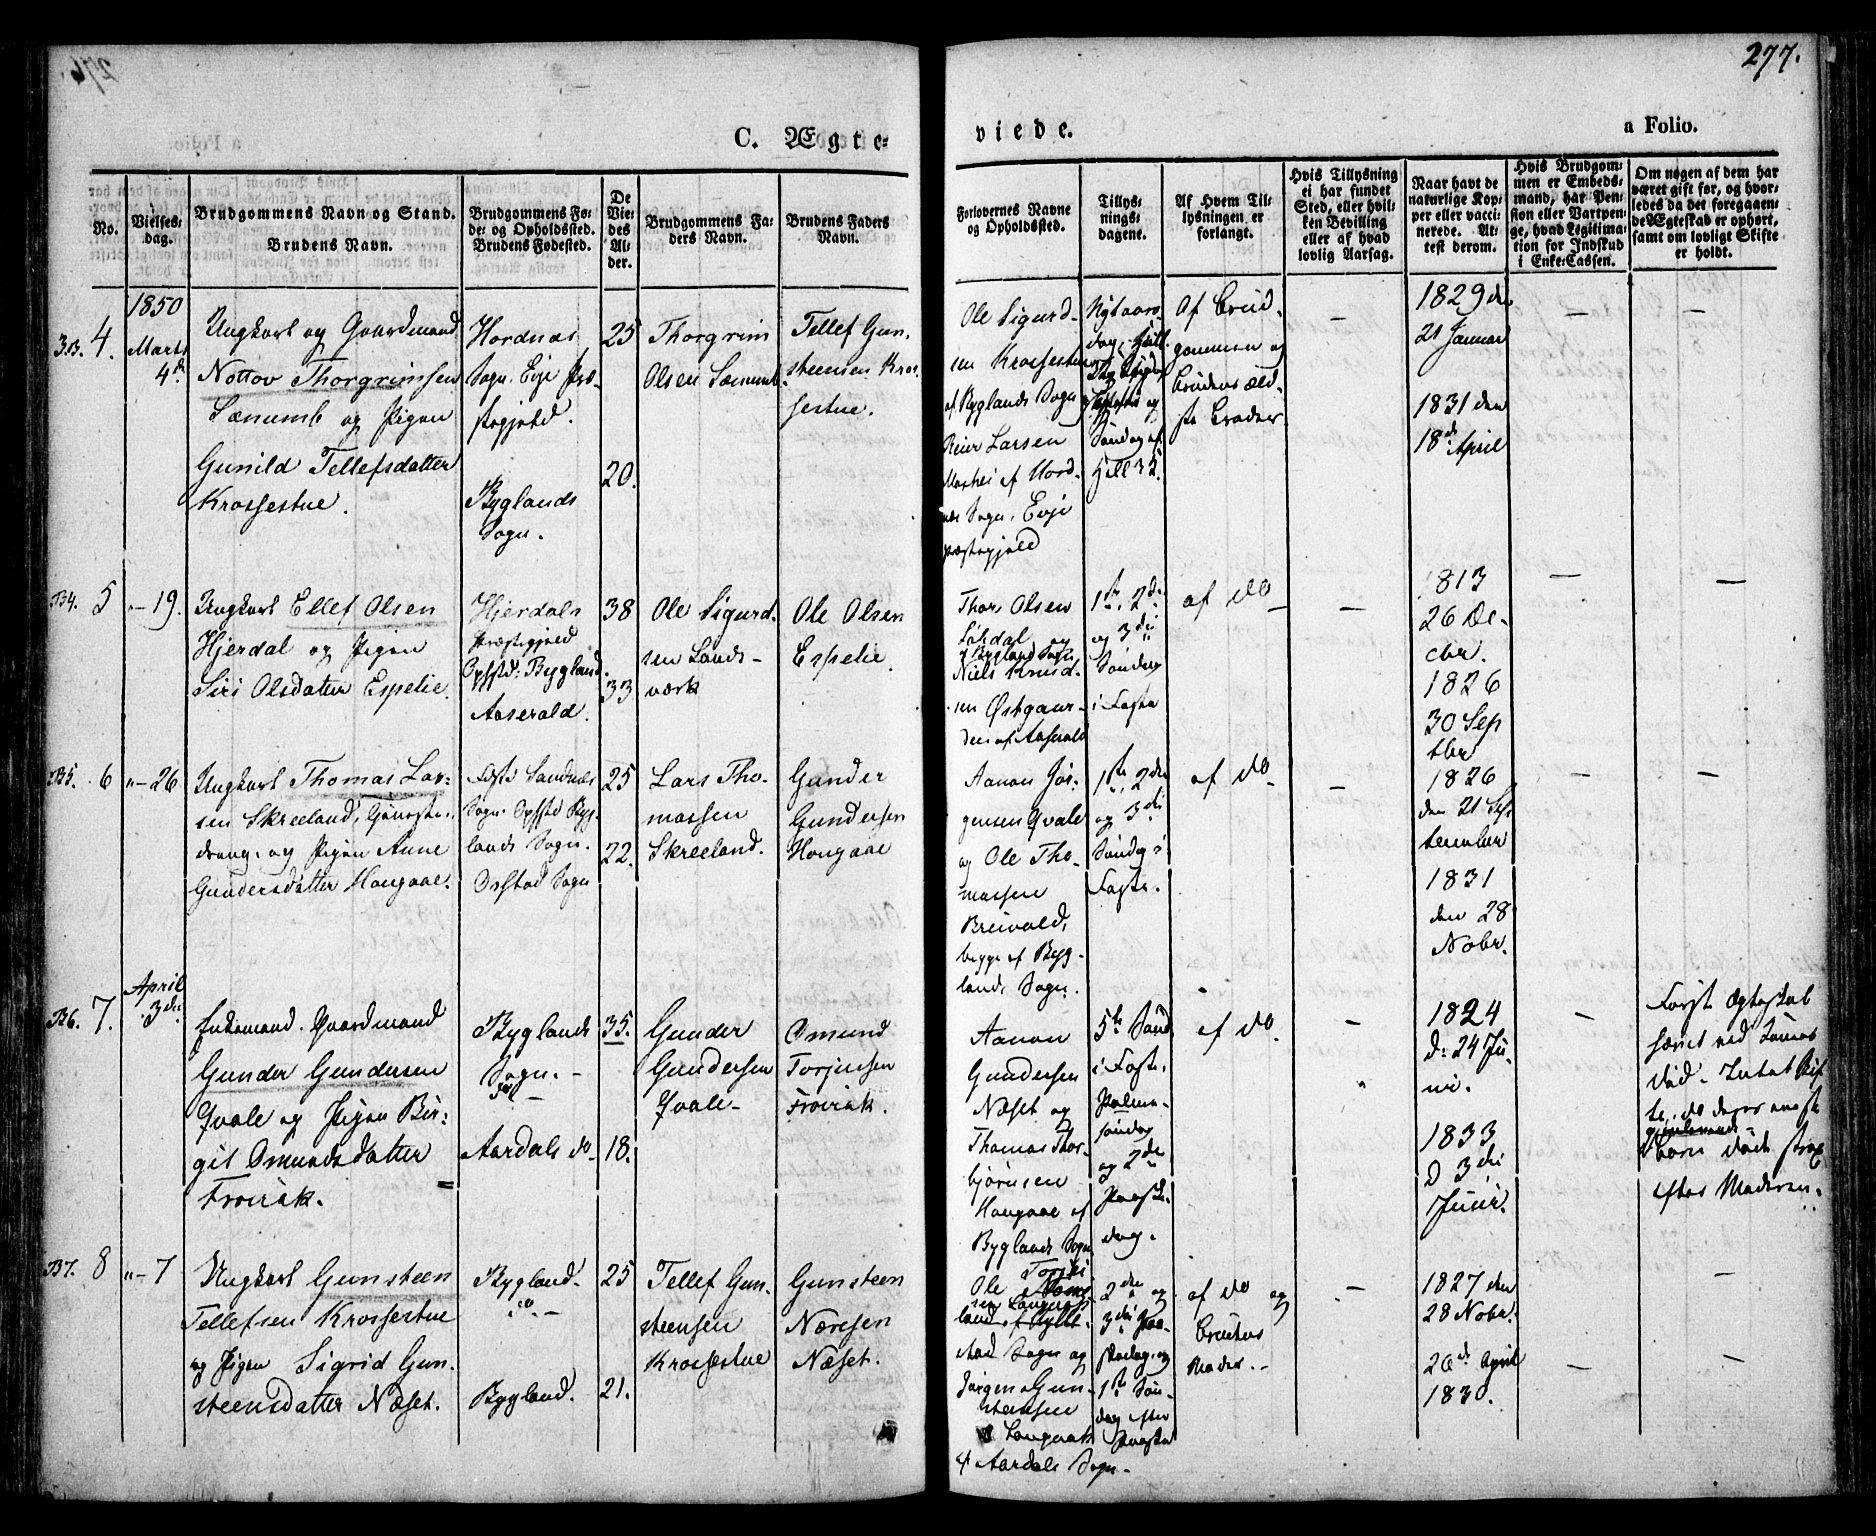 277.
C. Ægte-
viede.
a Folio.
No.
Vielses-
dag.
Brudgommens Navn og Stand.
Brudens Navn.
Brudgommens Fø-
de- og Opholdssted.
Brudens Fødested.
De
Vie-
des
Al-
der.
Brudgommens Fa-
ders Navn.
Brudens Faders
Navn.
Forlovernes Navne
og Opholdssted.
Tillys-
nings-
dagene.
Af Hvem Til-
lysningen er
forlangt.
Hvis Tillysning
ei har fundet
Sted, eller hvil-
ken Bevilling
eller af hvad
lovlig Aarsag.
Naar havt de
naturlige Kop-
per eller vacci-
nerede. At-
test derom.
Hvis Brudgom-
men er Embeds-
mand, har Pen-
sion eller Vartpen-
ge, hvad Legitima-
tion for Indskud
i Enke-Cassen.
Om nogen af dem har
været gift før, og hvor-
ledes da det foregaaen-
de Ægteskab er ophørt,
samt om lovligt Skifte
er holdt.
4.
1850
Marts
4de
Ungkarl og Gaardmand
Nottov Thorgrimsen
Sænumb og Pigen
Gunild Tellefsdatter
Krossestue.
Hordnæs
Sogn. Evje Præ-
stegjeld.
Byglands
Sogn.
25
20.
Thorgrim
Olsen Sænumb
Tellef Gun-
steensen Kros-
sestue.
Ole Sigurd-
sen Krossestue
af Byglands Sogn
Reier Larsen
af Hord-
næs Sogn. Evje
Præstegjeld
Nytaars-
dag,
Søndag ef
Hell 3 K.
Af Brud-
gommen og
Brudens æld-
ste Broder
-
1829 den
21 Januar
1831 den
18de April
-
-
B4. 5
"-19.
Ungkarl Ellef Olsen
Hjerdal og Pigen
Siri Olsdatter Espelie.
Hjerdals
Præstegjeld
Opstd: Bygland.
Aaserald.
38
33
Ole Sigurd-
sen Lands-
værk
Ole Olsen
Espelie.
Thor Olsen
og
af Bygland Sogn
Niels Knud-
sen Østgaar-
den af Aaserald
1ste, 2den
og 3die
Søndag
i Faste
af do
-
1813
26 De-
cbr.
1826
30 Sep
tbr
-
-
B5. 6
"-26
Ungkarl Thomas Lar-
sen Skreeland, Tjeneste-
dreng. og Pigen Anne
Gundersdatter Hougaae.
Føste Sandnæs
Sogn. Opstd Byg-
lands Sogn.
Sogn
25
22.
Lars Tho-
massen
Skreeland.
Gunder
Gundersen
Hougaae
Aanon Jør-
gensen Qvale
og Ole Tho-
massen
Breivold,
begge af Byg-
lands Sogn.
1ste, 2den
og 3die
Søndag i
Faste.
af do
-
1826
den 21 Sep
tember
1831
den 28
Novbr.
-
-
B6. 7.
April
3die
Enkemand. Gaardmand
Gunder Gundersen
Qvale og Pigen Bir-
git Omundsdatter
Froirak.
Byglands
Sogn. -
Aardals do
35.
18.
Gunder
Gundersen
Qvale-
Omund
Torjussen
Froirak.
Aanon
Gundersen
Næset og
Thomas Thor-
bjørnsen
Hougaae af
Byglands Sogn
5te Sønd
i Faste.
Palme-
søndag
og 2den
Paaske-
dag.
af do
-
1824
d: 24 Ju-
ni.
1833
d 3die
Juni.
-
Først Ægteskab
hævet ved Konens
død. Intet Skif
te, da deres eneste
Børn døde strax
efter Moderen.
B7. 8
"-7
Ungkarl Gunsteen
Tellefsen Krossestue
og Pigen Sigrid Gun-
steensdatter Næset.
Bygland
Bygland.
25
21.
Tellef Gun-
steensen
Krossestue
Gunsteen
Næresen
Næset.
Ole
land af Hyllt-
stad Sogn og
Jørgen Gun-
steensen
Langeraak
af Aardals Sogn.
2den og
3die Paa-
skedag og
1ste Søn-
dag efter
Paaske
af do og
Brudens
Moder.
-
1827 den
28 Novbr.
26de April
1830.
-
-